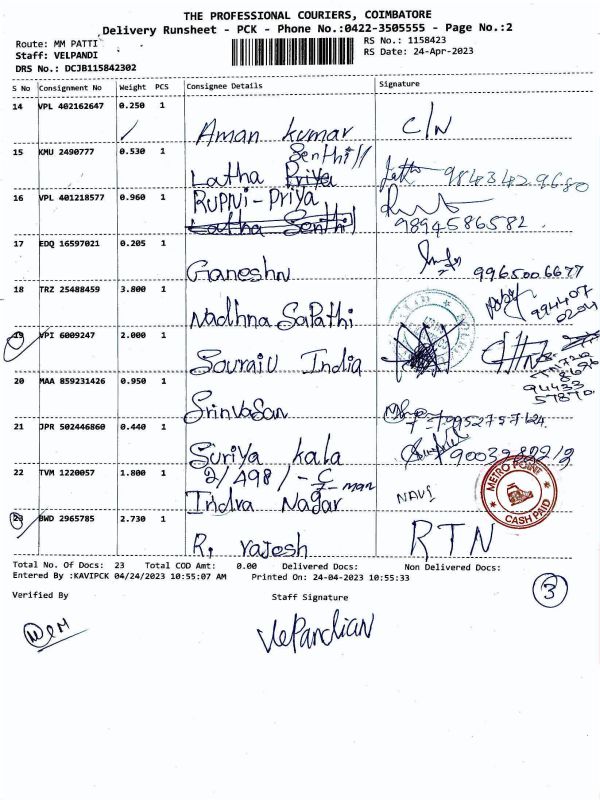 THE PROFESSIONAL COURIERS, COIMBATORE
Delivery Runsheet - PCK - Phone No.:0422-3505555 - Page No.:2
Route: MM PATTI
RS No.: 1158423
Staff: VELPANDI
RS Date: 24-Apr-2023
DRS No.: DCJB115842302
S No Consignment No Weight PCS Consignee Details Signature
14 VPL 402162647 0.250 1
Aman kumar C/N
15 KMU 2490777 0.530 1
Senthil
Latha Priya 9843429680
16 VPL 401218577 0.960 1
Priya
Latha Senthil 9894586582
17 EDQ 16597021 0.205 1
Ganeshn 9965006677
18 TRZ 25488459 3.800 1
Nadhna Sapathi 994407
0204
19 VPI 6009247 2.000 1
India
20 MAA 859231426 0.950 1
Srinvasan
21 JPR 502446860 0.440 1
Suriya kala
22 TVM 1220057 1.800 1
2/498/-C
Indra Nagar NAVI
METRO POINT
CASH PAID
23 BWD 2965785 2.730 1
R. rajesh RTN
Total No. Of Docs: 23 Total COD Amt: 0.00 Delivered Docs: Non Delivered Docs:
Entered By :KAVIPCK 04/24/2023 10:55:07 AM Printed On: 24-04-2023 10:55:33
3
Verified By Staff Signature
VelPandian